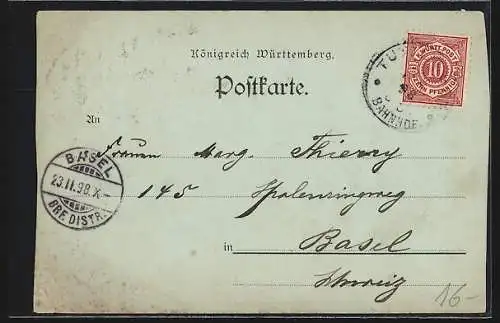 Königreich Württemberg.
Postkarte.
K. WÜRTT. POST
10
ZEHN PFENNIG
BAHNHOF.
An
Frauen Marg. Thierry
145 Spalenringweg
in Basel
Schweiz
BASEL
23.II.98.X.–
BRF. DISTR.
16-